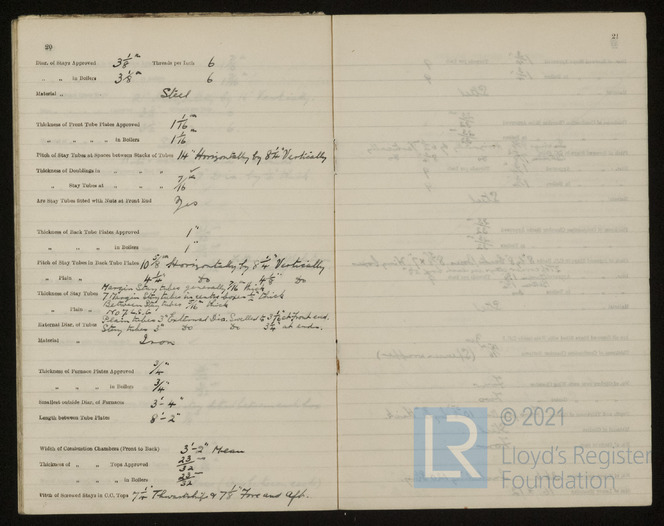 20
Diam. of Stays Approved 3 1/8" Threads per Inch 6
" " in Boilers 3 1/8" 6
Material " Steel
Thickness of Front Tube Plates Approved 1 1/16"
" " " " in Boilers 1 1/16"
Pitch of Stay Tubes at Spaces between Stacks of Tubes 14" Horizontally by 8 1/4" Vertically
Thickness of Doublings in " " " " —
" Stay Tubes at " " " " 7/16"
Are Stay Tubes fitted with Nuts at Front End Yes
Thickness of Back Tube Plates Approved 1"
" " " " in Boilers 1"
Pitch of Stay Tubes in Back Tube Plates 10 5/8" Horizontally by 8 1/4" Vertically
" Plain " 4 1/4" Do 4 1/8" Do
Margin Stay tubes generally 5/16" thick
Thickness of Stay Tubes 7 Margin Stay tubes thick
Between Stay tubes 5/16" thick
" Plain " No 7 L.S.G.
Plain tubes 3" External Dia. Swelled to 3 1/4" at front end.
External Diam. of Tubes Stay tubes 3" Do Do 3 1/4" at ends.
Material " Iron
Thickness of Furnace Plates Approved 3/4"
" " " in Boilers 3/4"
Smallest outside Diam. of Furnaces 3'-4"
Length between Tube Plates 8'-2"
Width of Combustion Chambers (Front to Back) 3'-2" Mean
Thickness of " " Tops Approved 23/32"
" " " " in Boilers 23/32"
Pitch of Screwed Stays in C.C. Tops 7 1/4" Thwartship & 7 1/8" Fore and Aft.
21
© 2021
LR
Lloyd's Register
Foundation